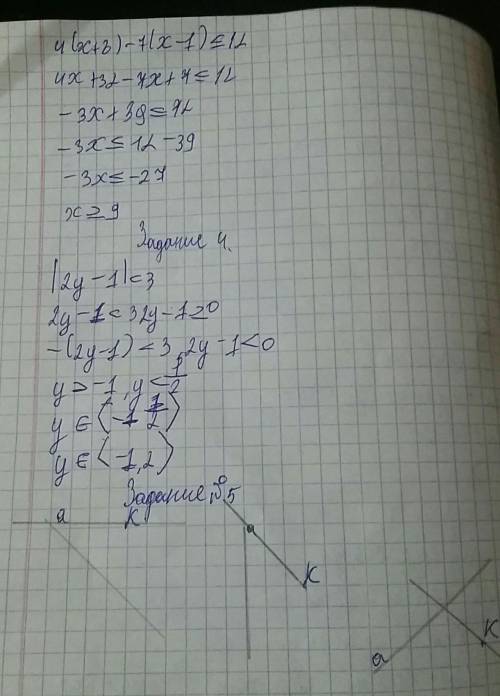 4(x+8)-7(x-1)≤12
4x+32-7x+7≤12
-3x+39≤12
-3x≤12-39
-3x≤-27
x≥9
Задание 4.
|2y-1|<3
2y-1<3 2y-1≥0
-(2y-1)<3, 2y-1<0
y>-1, y<1/2
y∈(-1 1/2)
y∈(-1,2)
Задание 5
a K
a
K
K
a